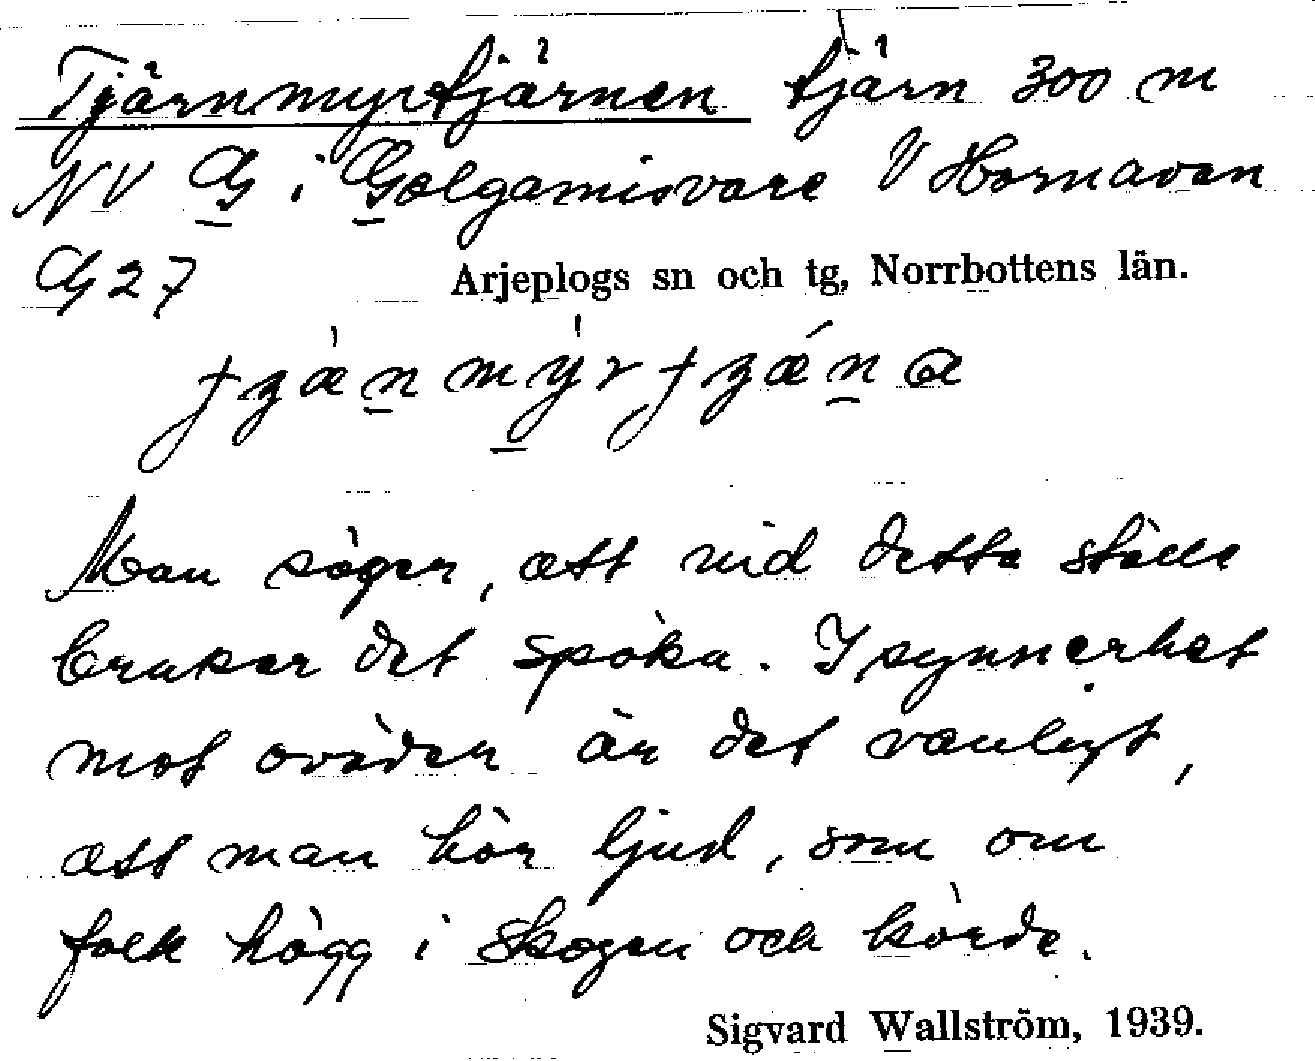 Tjärnmyrtjärnen tjärn 300 m
NV G i Galgamisvare V Hornavan
G 27 Arjeplogs sn och tg, Norrbottens län.
Man säger, att vid detta ställe
brukar det spöka. I synnerhet
mot oväder är det vanligt,
att man hör ljud, som om
folk högg i skogen och körde.
Sigvard Wallström, 1939.